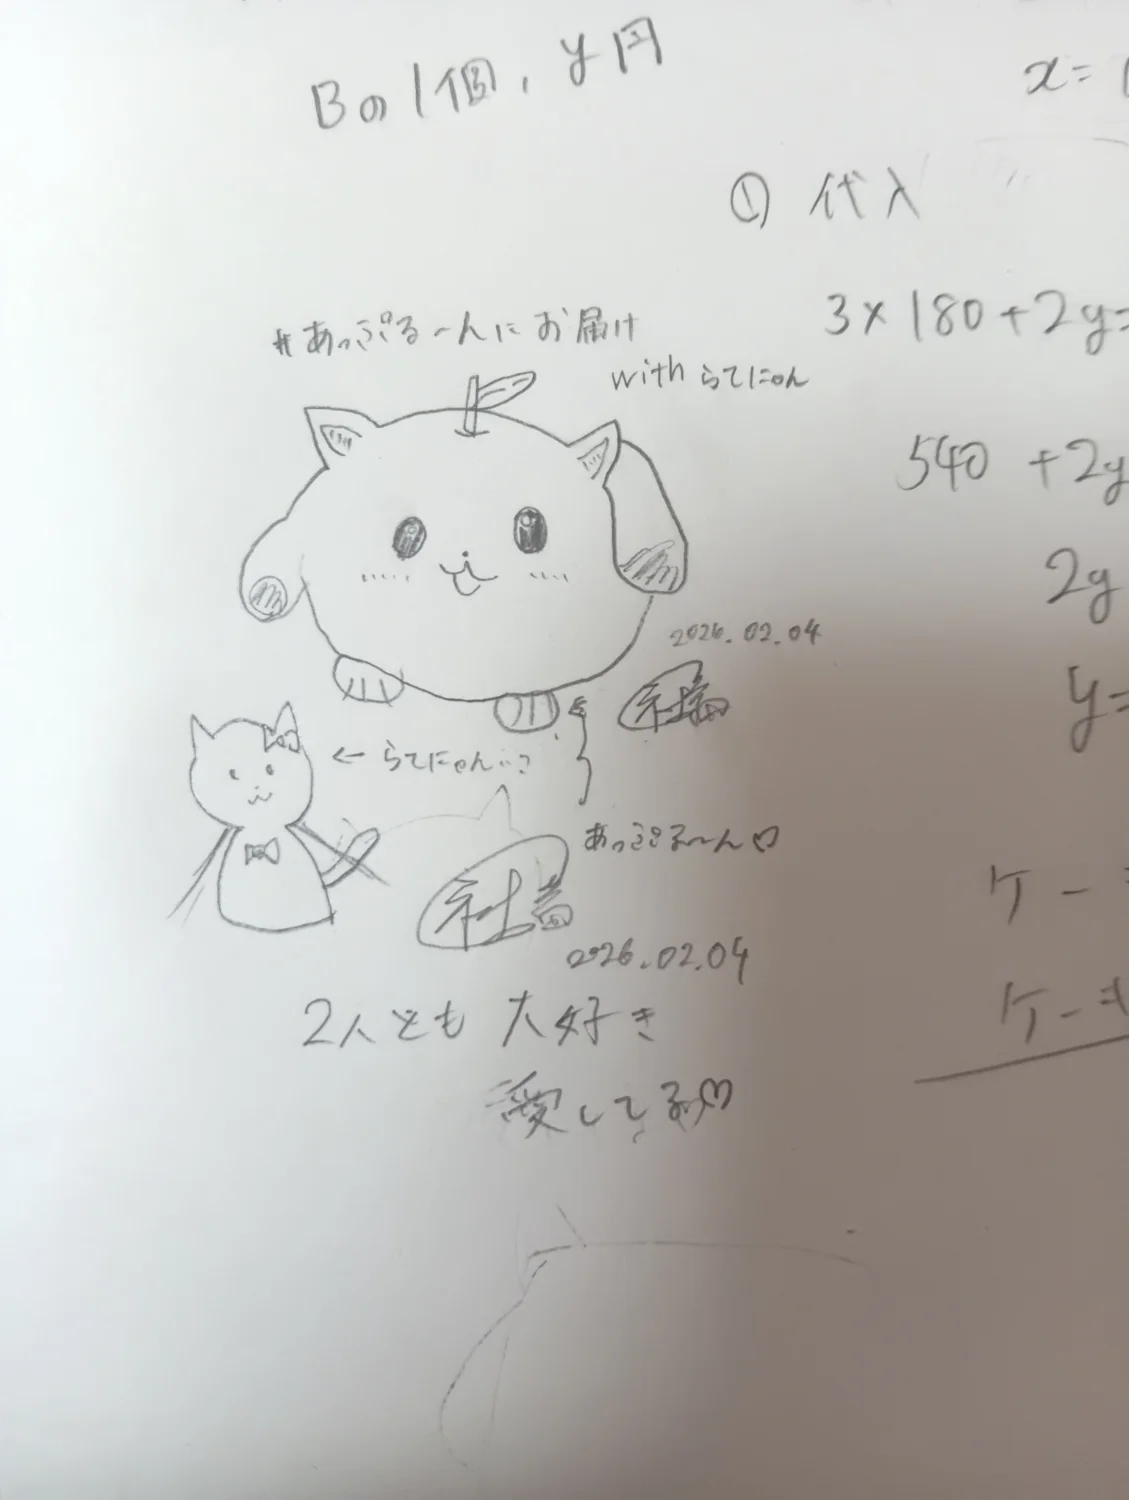 Bの1個, y円
x=
① 代入
3×180+2y=
#あっぷる〜んにお届け
with らてにゃん
540 +2y
2y
2026.02.04
y=
← らてにゃん…?
あっぷる〜ん♡
2026.02.04
ケー
ケーキ
2人とも 大好き
愛してる♡